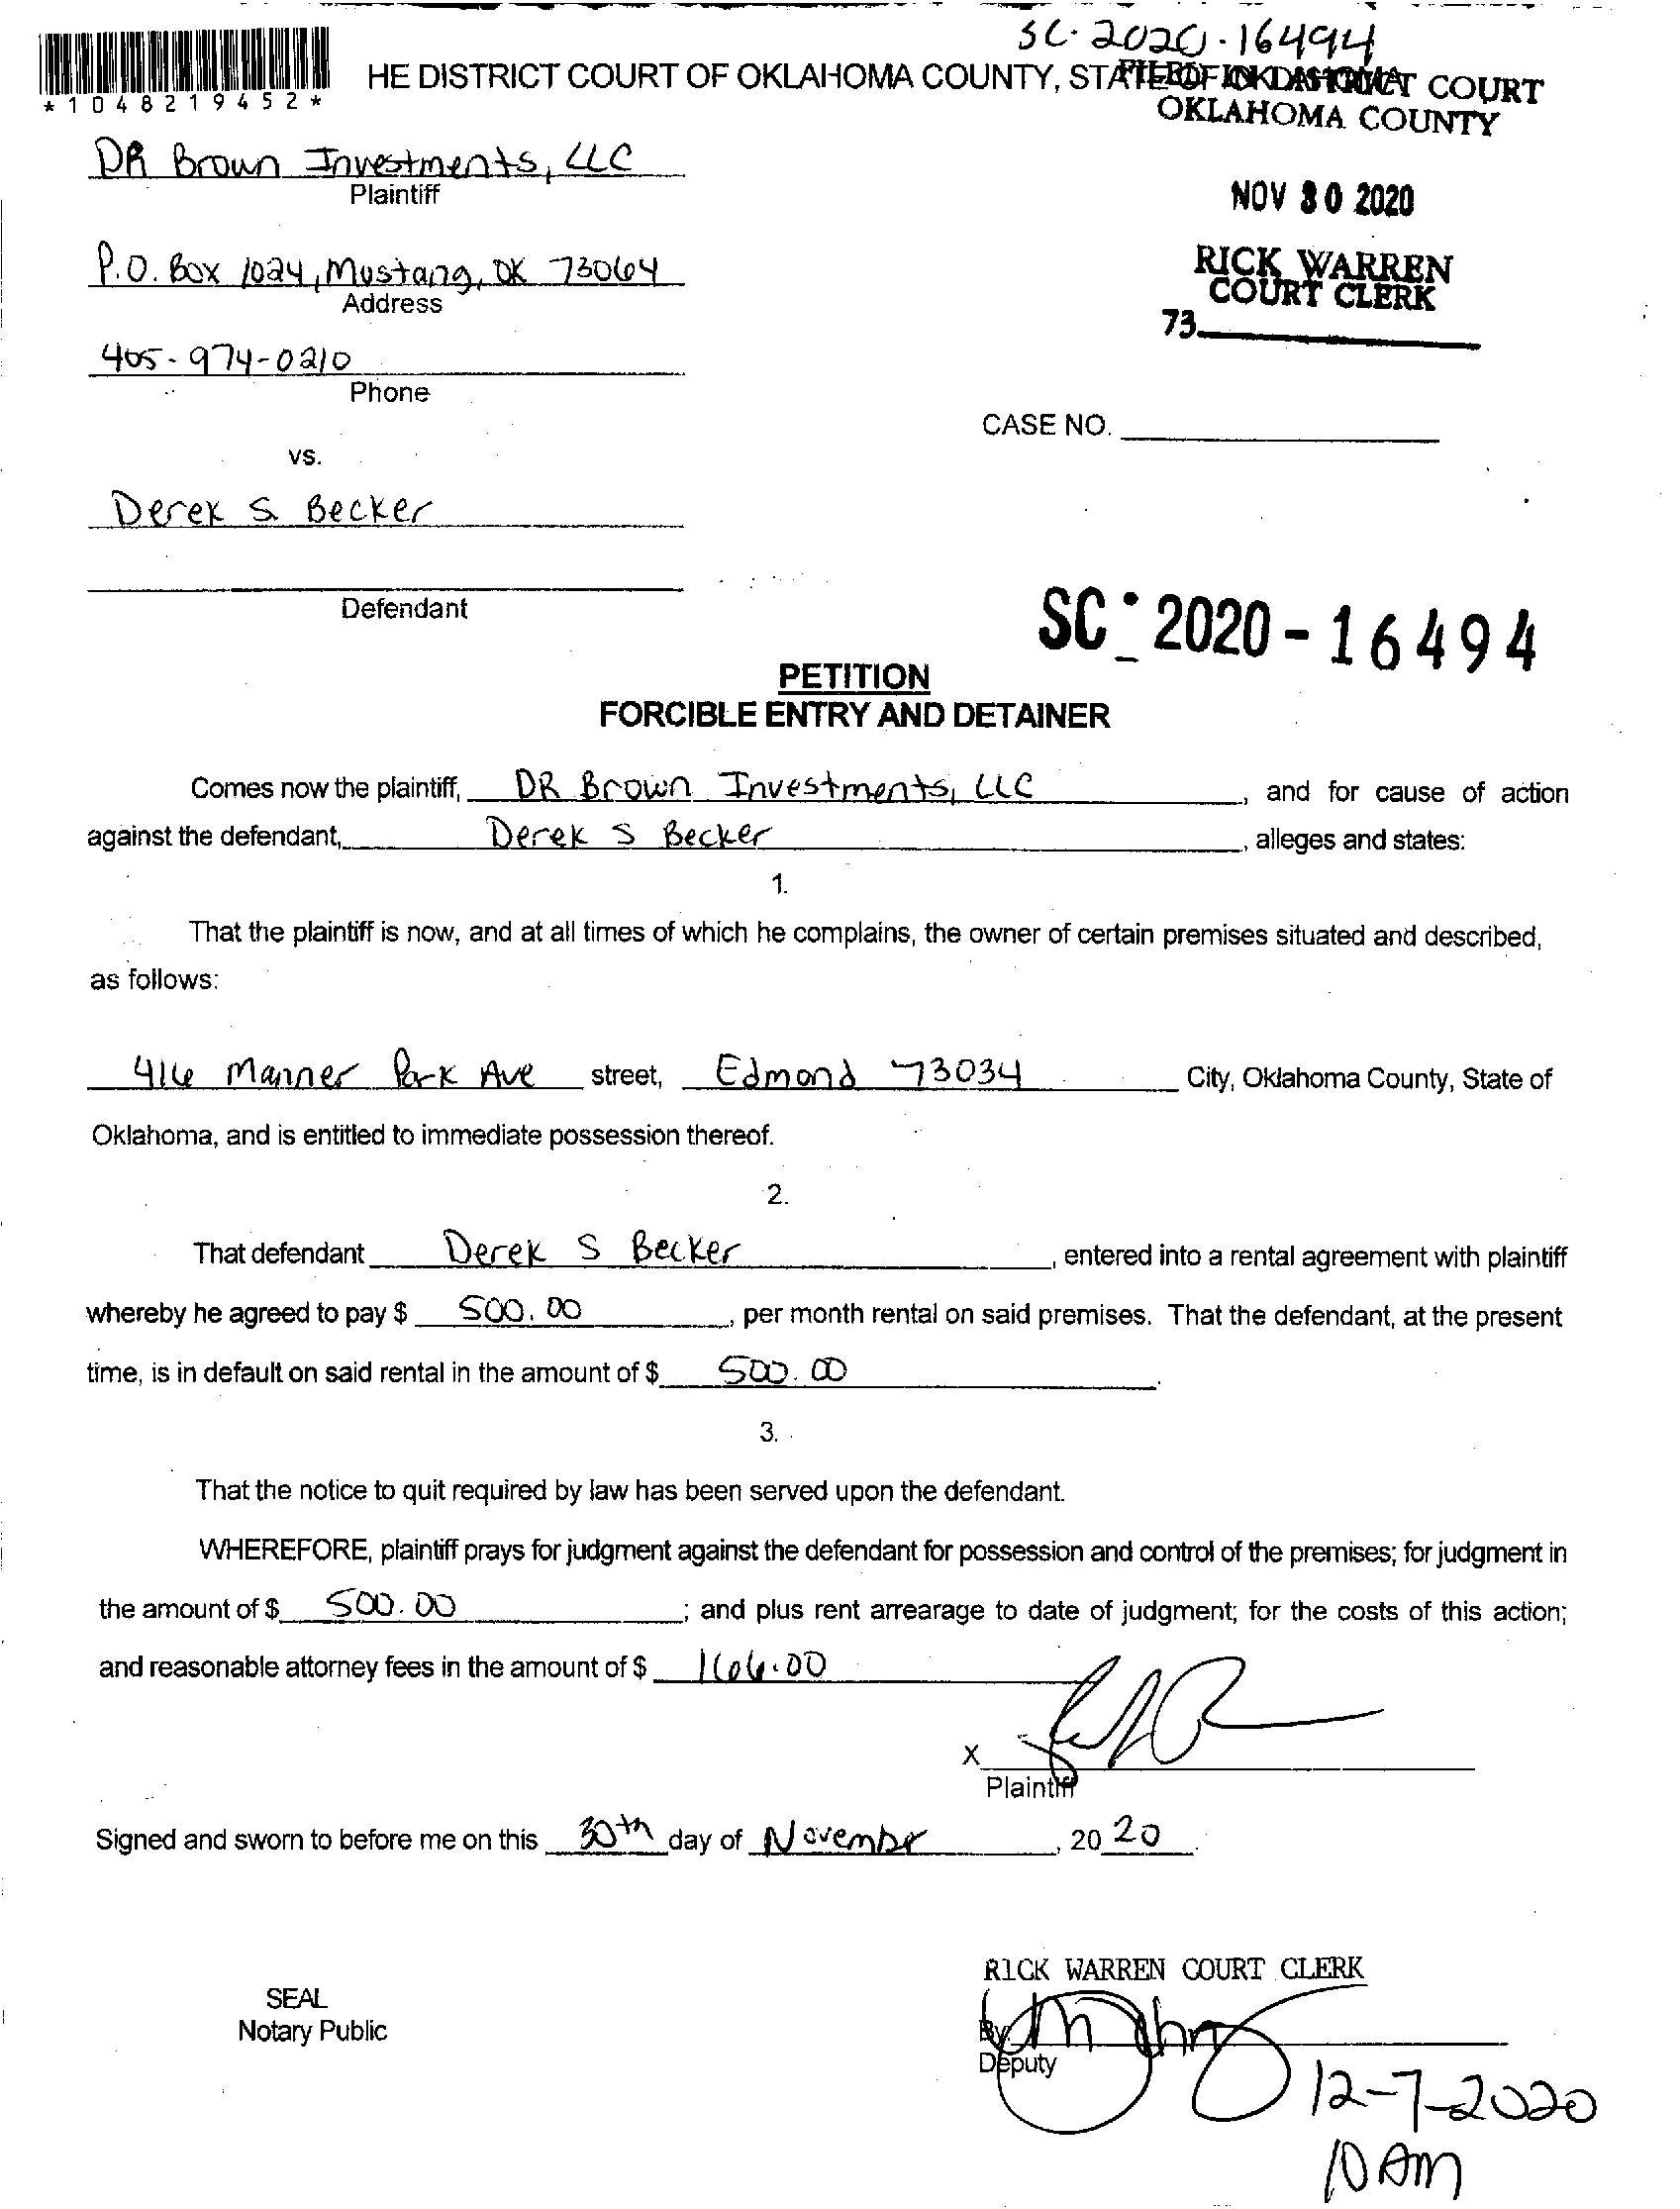 SC-2020-16494
*1048219452*
HE DISTRICT COURT OF OKLAHOMA COUNTY, STATE OF OKLAHOMA
FILED IN DISTRICT COURT
OKLAHOMA COUNTY
DR Brown Investments, LLC
Plaintiff
NOV 30 2020
P.O. Box 1024, Mustang, OK 73064
Address
RICK WARREN
COURT CLERK
73
405-974-0210
Phone
CASE NO.
vs.
Derek S. Becker
Defendant
SC-2020-16494
PETITION
FORCIBLE ENTRY AND DETAINER
Comes now the plaintiff, DR Brown Investments, LLC, and for cause of action
against the defendant, Derek S Becker, alleges and states:
1.
That the plaintiff is now, and at all times of which he complains, the owner of certain premises situated and described,
as follows:
416 Manner Park Ave street, Edmond 73034 City, Oklahoma County, State of
Oklahoma, and is entitled to immediate possession thereof.
2.
That defendant Derek S Becker, entered into a rental agreement with plaintiff
whereby he agreed to pay $ 500.00, per month rental on said premises. That the defendant, at the present
time, is in default on said rental in the amount of $ 500.00.
3.
That the notice to quit required by law has been served upon the defendant.
WHEREFORE, plaintiff prays for judgment against the defendant for possession and control of the premises; for judgment in
the amount of $ 500.00; and plus rent arrearage to date of judgment; for the costs of this action;
and reasonable attorney fees in the amount of $ 166.00
X
Plaintiff
Signed and sworn to before me on this 30th day of November, 2020.
RICK WARREN COURT CLERK
SEAL
Notary Public
By:
Deputy
12-7-2020
10 AM